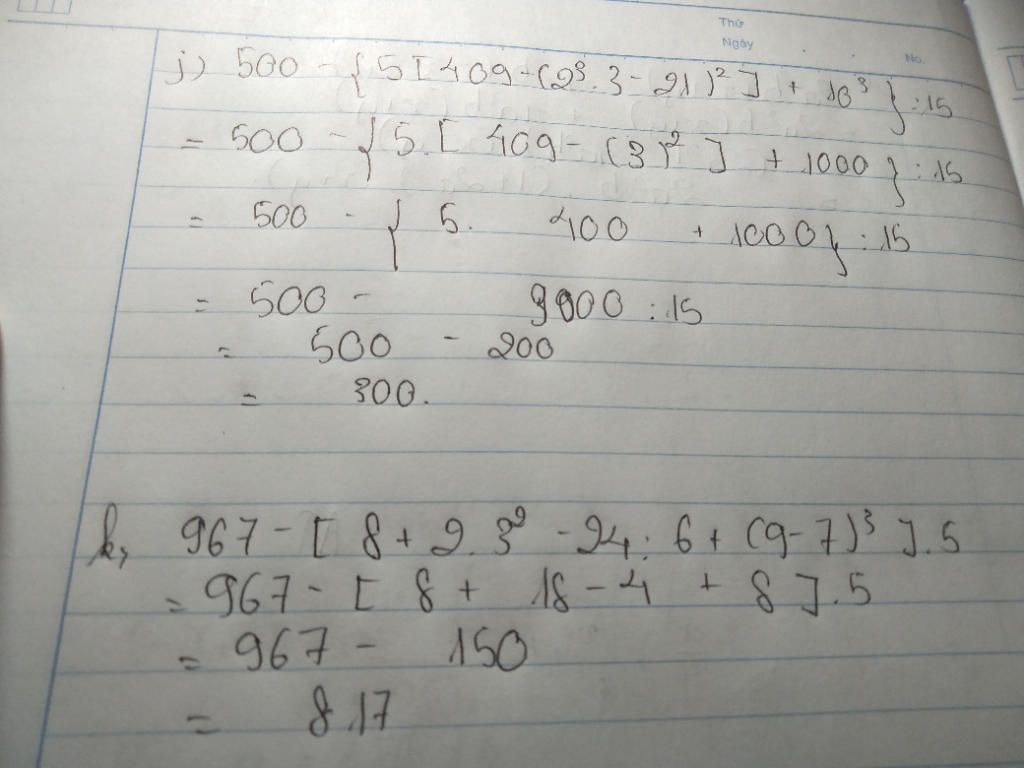 Thứ
Ngày
No.
j) 500 - { 5 [ 409 - (2³ . 3 - 21)² ] + 10³ } : 15
= 500 - { 5 . [ 409 - (3)² ] + 1000 } : 15
= 500 - { 5 . 400 + 1000 } : 15
= 500 - 3000 : 15
= 500 - 200
= 300.
k, 967 - [ 8 + 2 . 3² - 24 : 6 + (9 - 7)³ ] . 5
= 967 - [ 8 + 18 - 4 + 8 ] . 5
= 967 - 150
= 817